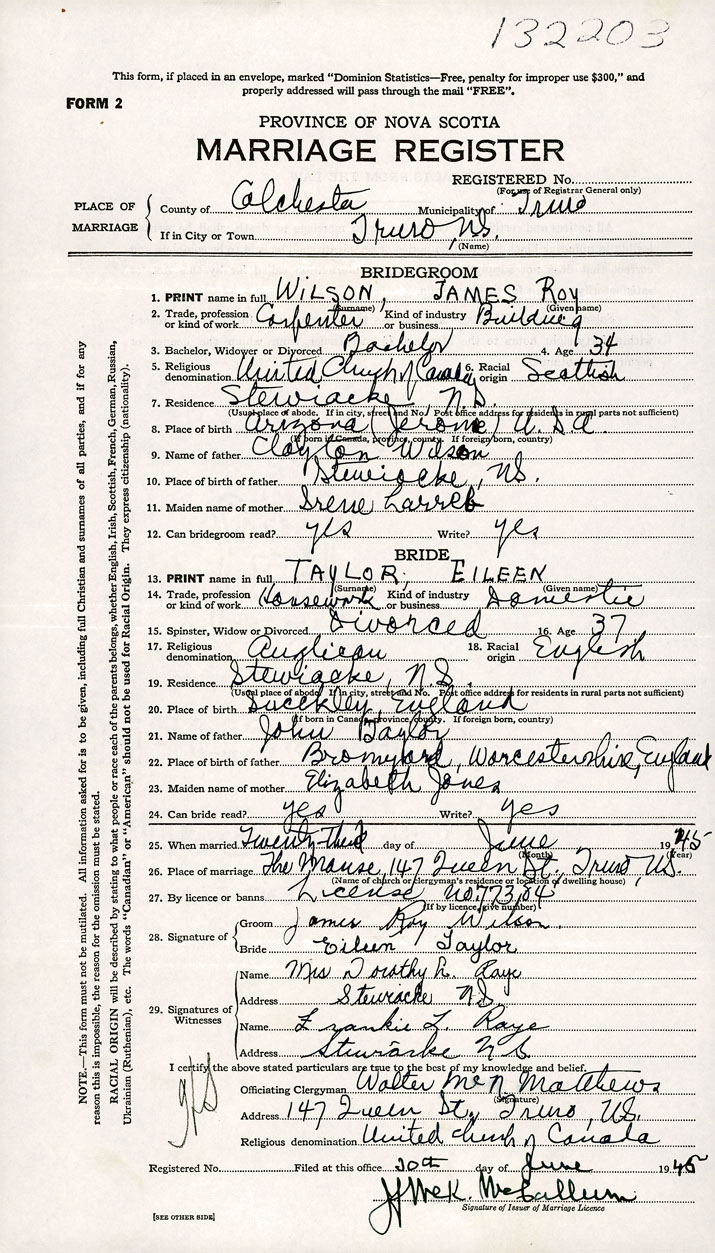 132203
This form, if placed in an envelope, marked “Dominion Statistics—Free, penalty for improper use $300,” and
properly addressed will pass through the mail “FREE”.
FORM 2
PROVINCE OF NOVA SCOTIA
MARRIAGE REGISTER
REGISTERED No.
(For use of Registrar General only)
PLACE OF MARRIAGE
County of Colchester Municipality of Truro
If in City or Town Truro, N.S.
(Name)
BRIDEGROOM
1. PRINT name in full WILSON, JAMES ROY
(Surname) (Given name)
2. Trade, profession or kind of work Carpenter Kind of industry or business Building
3. Bachelor, Widower or Divorced Bachelor 4. Age 34
5. Religious denomination United Church of Canada 6. Racial origin Scottish
7. Residence Stewiacke, N.S.
(Usual place of abode. If in city, street and No. Post office address for residents in rural parts not sufficient)
8. Place of birth Arizona (Jerome) U.S.A.
(If born in Canada, province, county. If foreign born, country)
9. Name of father Clayton Wilson
10. Place of birth of father Stewiacke, NS.
11. Maiden name of mother Irene
12. Can bridegroom read? yes Write? yes
BRIDE
13. PRINT name in full TAYLOR, EILEEN
(Surname) (Given name)
14. Trade, profession or kind of work Housework Kind of industry or business Domestic
15. Spinster, Widow or Divorced Divorced 16. Age 37
17. Religious denomination Anglican 18. Racial origin English
19. Residence Stewiacke, N.S.
(Usual place of abode. If in city, street and No. Post office address for residents in rural parts not sufficient)
20. Place of birth England
(If born in Canada, province, county. If foreign born, country)
21. Name of father John
22. Place of birth of father Bromyard, Worcestershire, England
23. Maiden name of mother Elizabeth Jones
24. Can bride read? yes Write? yes
25. When married Twenty-third day of June 1945
(Month) (Year)
26. Place of marriage The Manse, 147 Queen St., Truro, N.S.
(Name of church or clergyman's residence or location of dwelling house)
27. By licence or banns License no.
(If by licence, give number)
28. Signature of
Groom James Roy Wilson
Bride Eileen Taylor
29. Signatures of Witnesses
Name Mrs Dorothy L. Raye
Address Stewiacke N.S.
Name Frankie L Raye
Address Stewiacke N.S
I certify the above stated particulars are true to the best of my knowledge and belief.
Officiating Clergyman Walter McN Matthews
(Signature)
Address 147 Queen St., Truro, N.S.
Religious denomination United Church of Canada
Registered No. Filed at this office 30th day of June 1945
McCallum
Signature of Issuer of Marriage Licence
[SEE OTHER SIDE]
NOTE.—This form must not be mutilated. All information asked for is to be given, including full Christian and surnames of all parties, and if for any
reason this is impossible, the reason for the omission must be stated.
RACIAL ORIGIN will be described by stating to what people or race each of the parents belongs, whether English, Irish, Scottish, French, German, Russian,
Ukrainian (Ruthenian), etc. The words “Canadian” or “American” should not be used for Racial Origin. They express citizenship (nationality).